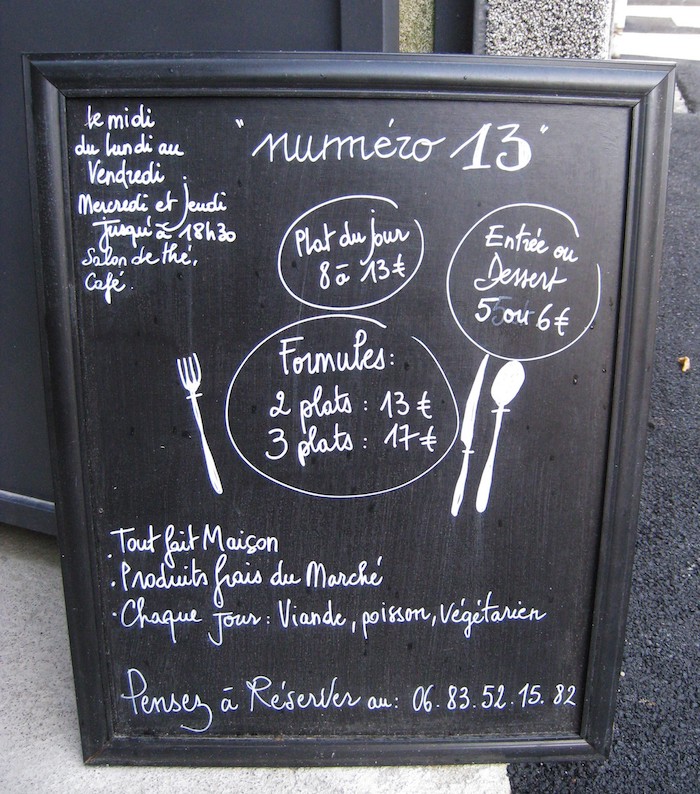 le midi
du lundi au
Vendredi
Mercredi et Jeudi
jusqu'à 18h30
Salon de thé,
Café.
"numéro 13"
Plat du jour
8 à 13 €
Entrée ou
Dessert
5 ou 6 €
Formules:
2 plats : 13 €
3 plats : 17 €
. Tout fait Maison
. Produits frais du Marché
. Chaque jour : Viande, poisson, végétarien
Pensez à Réserver au: 06.83.52.15.82